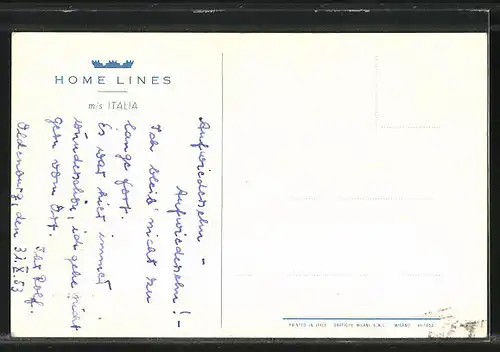 HOME LINES
m/s ITALIA
Aufwiedersehn –
Aufwiedersehn! –
Ich bleib' nicht zu
lange fort.
Es war hier immer
wunderschön, ich gehe nicht
gern vom Ort.
Ihr Rolf.
Oldenburg, den 31.X.53
PRINTED IN ITALY GRAFICHE MILANI S.R.L. MILANO